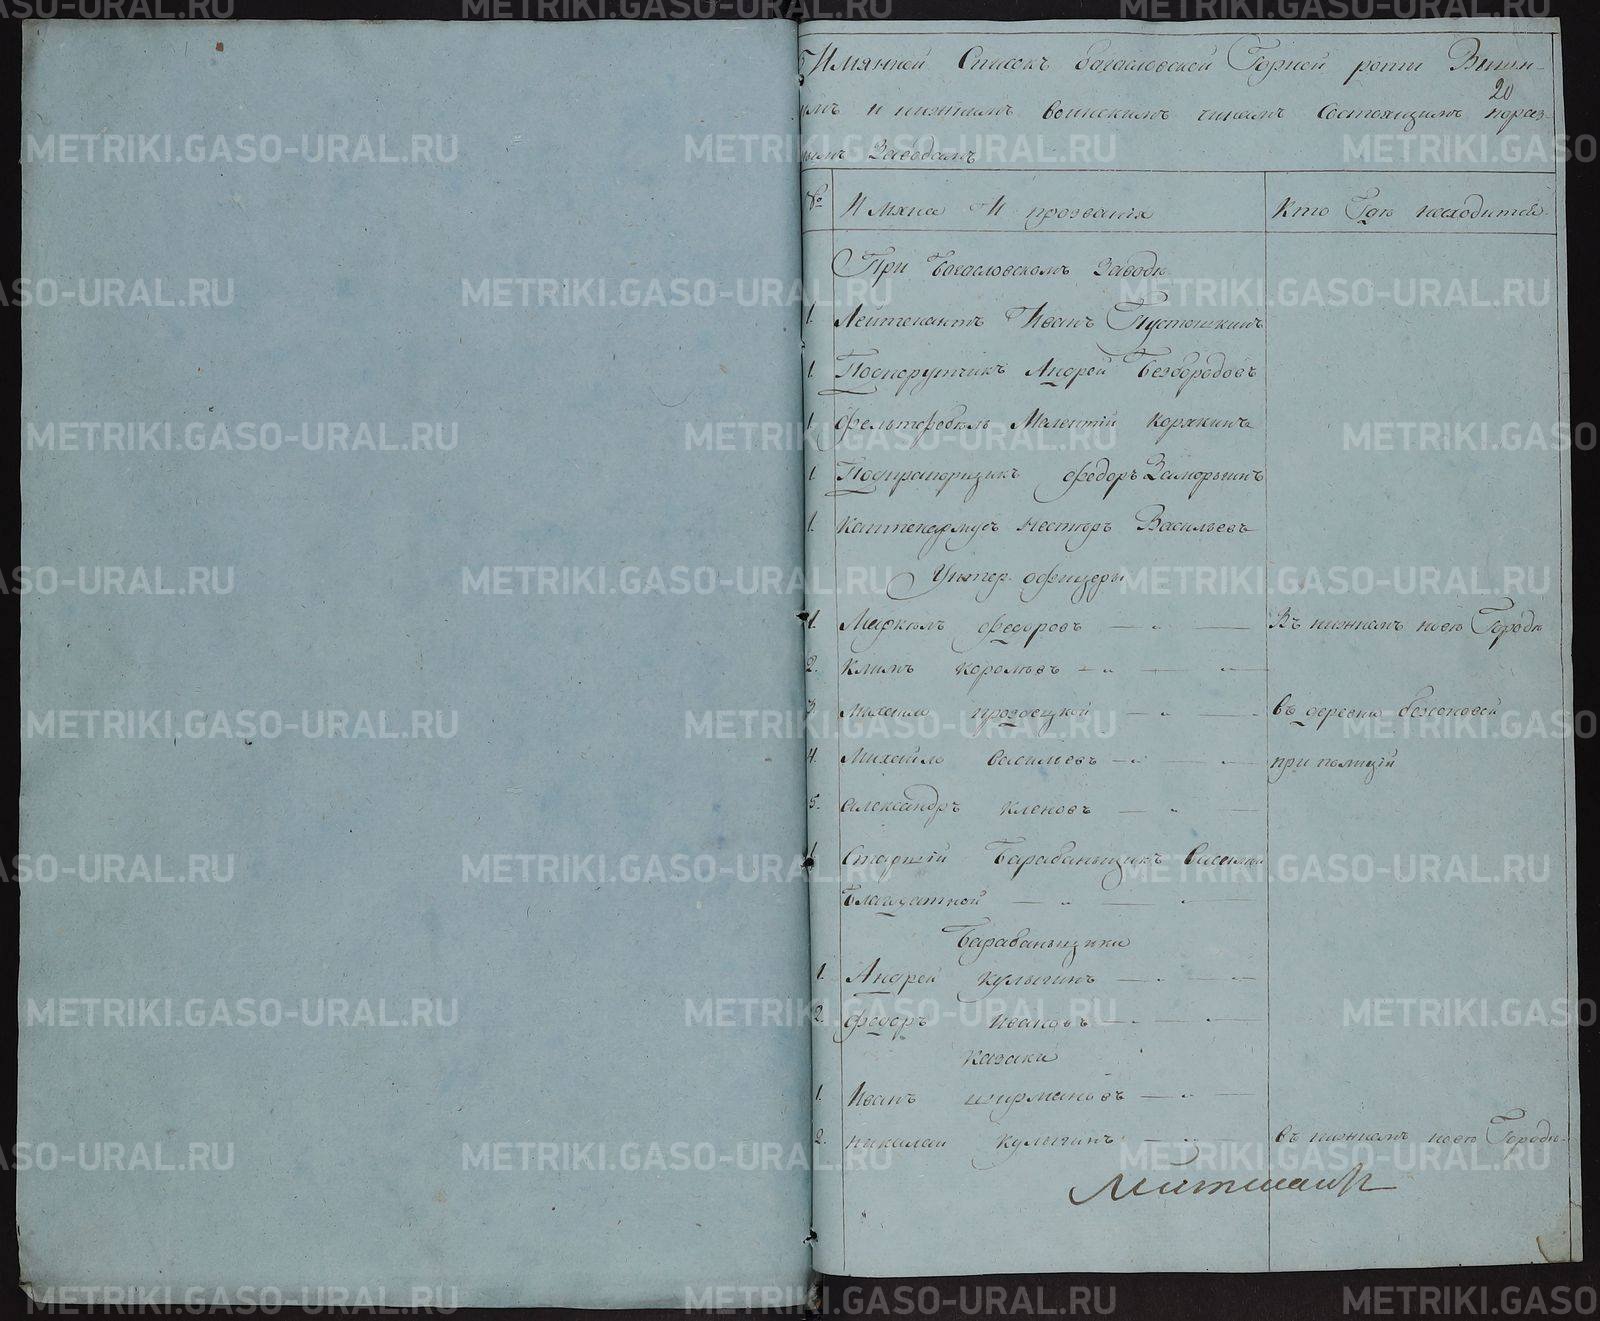 Имянной Списокъ багословской Горной роты Вышн-
имъ и нижнимъ воинскимъ чинамъ Состоящимъ пораз-
нымъ Заводамъ
20
№ Имяна И прозвания Кто Где находится
При Багословскомъ Заводе
1. Лейтенантъ Иванъ Пустошкинъ
1. Подпорутчикъ Андрей Безбородовъ
1. фельтфебель Мелентий Корякинъ
1. Подпрапорщикъ федоръ Заморыгинъ
1. Каптенармусъ Нестеръ Васильевъ
Унтер офицеры
1. федоровъ Въ нижнемъ нове Городе
2. Климъ королевъ
3. въ деревни
4. Михайло васильевъ при полиции
5. александръ кленовъ
1. Старший Барабаньщикъ василий
Барабаньщики
1. Андрей кулыгинъ
2. федоръ Ивановъ
Казаки
1. Иванъ
2. николай кулыгинъ въ нижнемъ нове Городе
METRIKI.GASO-URAL.RU